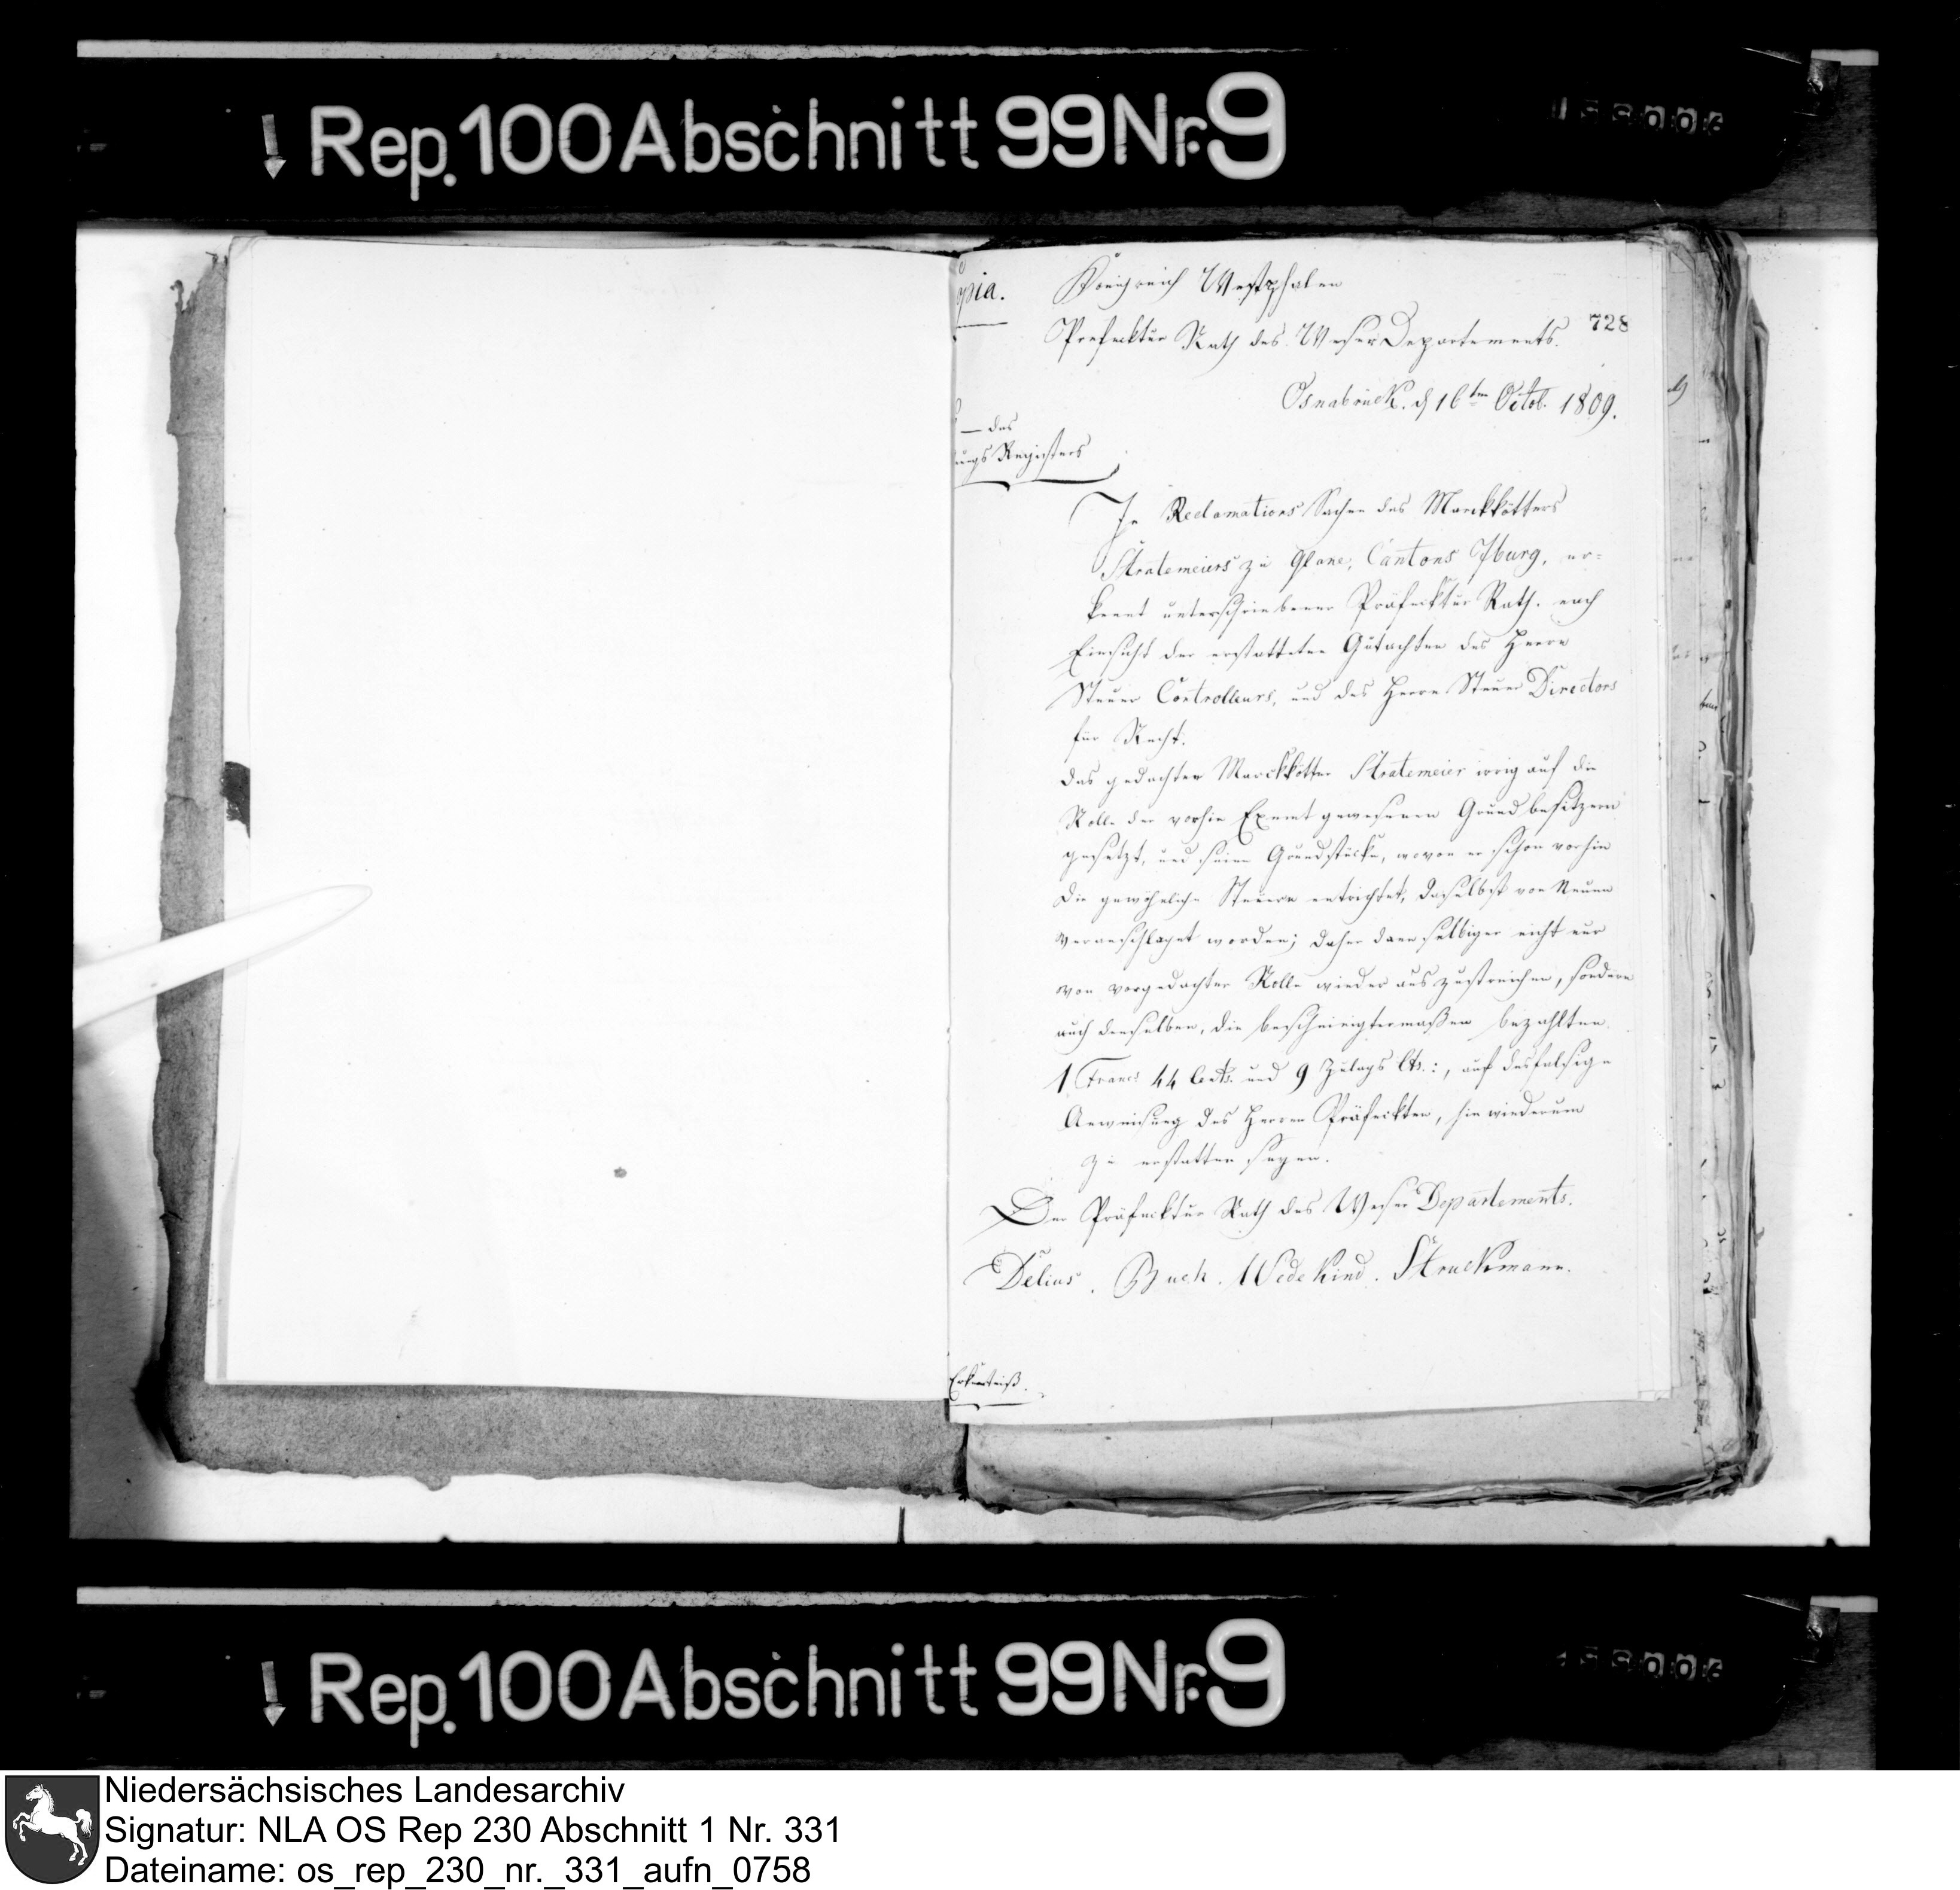 Rep. 100 Abschnitt 99 Nr. 9
opia.
Königreich Westphalen
728
Prefecktur Rath des Weser Departements.
Osnabrück. d 16ten Octob. 1809.
— des
ungs Registers
In Reclamations Sachen des Marckkötters
Stratemeiers zu Glane, Cantons Iburg, er=
kennt unterschriebener Präfecktur Rath. nach
Einsicht der erstatteten Gutachten des Herrn
Steuer Controlleurs, und des Herrn Steuer Directors
für Recht.
Das gedachter Marckkötter Stratemeier irrig auf die
Rolle der vorhin Exemt gewesenen Grundbesitzern
gesetzt, und seine Grundstücke, wovon er schon vorhin
die gewöhnliche Steuern entrichtet, daselbst von Neuem
veranschlaget worden; daher dann selbiger nicht nur
von vorgedachter Rolle wieder auszustreichen, sondern
auch denselben, die bescheinigtermaßen bezahlten
1 Francs 44 Cents. und 9 Zulags Cts.:, auf desfalsige
Anweisung des Herren Präfeckten, hinwiederum
zu erstatten seyen.
Der Präfecktur Rath des Weser Departements.
Delius. Buch. Wedekind. Struckmann.
Erkentniß.
Rep. 100 Abschnitt 99 Nr. 9
Niedersächsisches Landesarchiv
Signatur: NLA OS Rep 230 Abschnitt 1 Nr. 331
Dateiname: os_rep_230_nr._331_aufn_0758